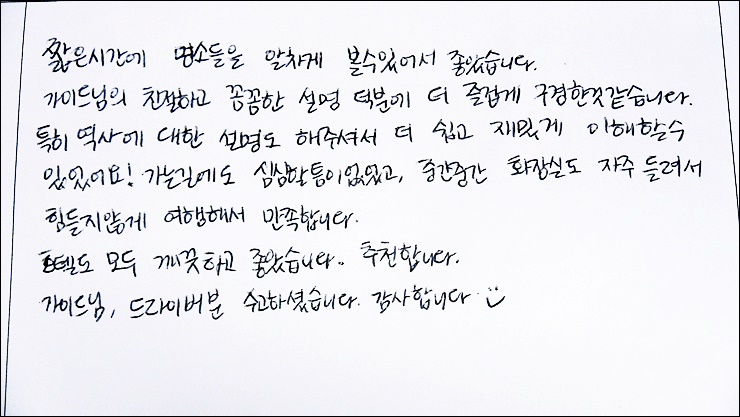 짧은시간에 명소들을 알차게 볼수있어서 좋았습니다.
가이드님의 친절하고 꼼꼼한 설명 덕분에 더 즐겁게 구경한것같습니다.
특히 역사에 대한 설명도 해주셔서 더 쉽고 재밌게 이해할수
있었어요! 가는길에도 심심할틈이없었고, 중간중간 화장실도 자주 들려서
힘들지않게 여행해서 만족합니다.
호텔도 모두 깨끗하고 좋았습니다.. 추천합니다.
가이드님, 드라이버분 수고하셨습니다. 감사합니다